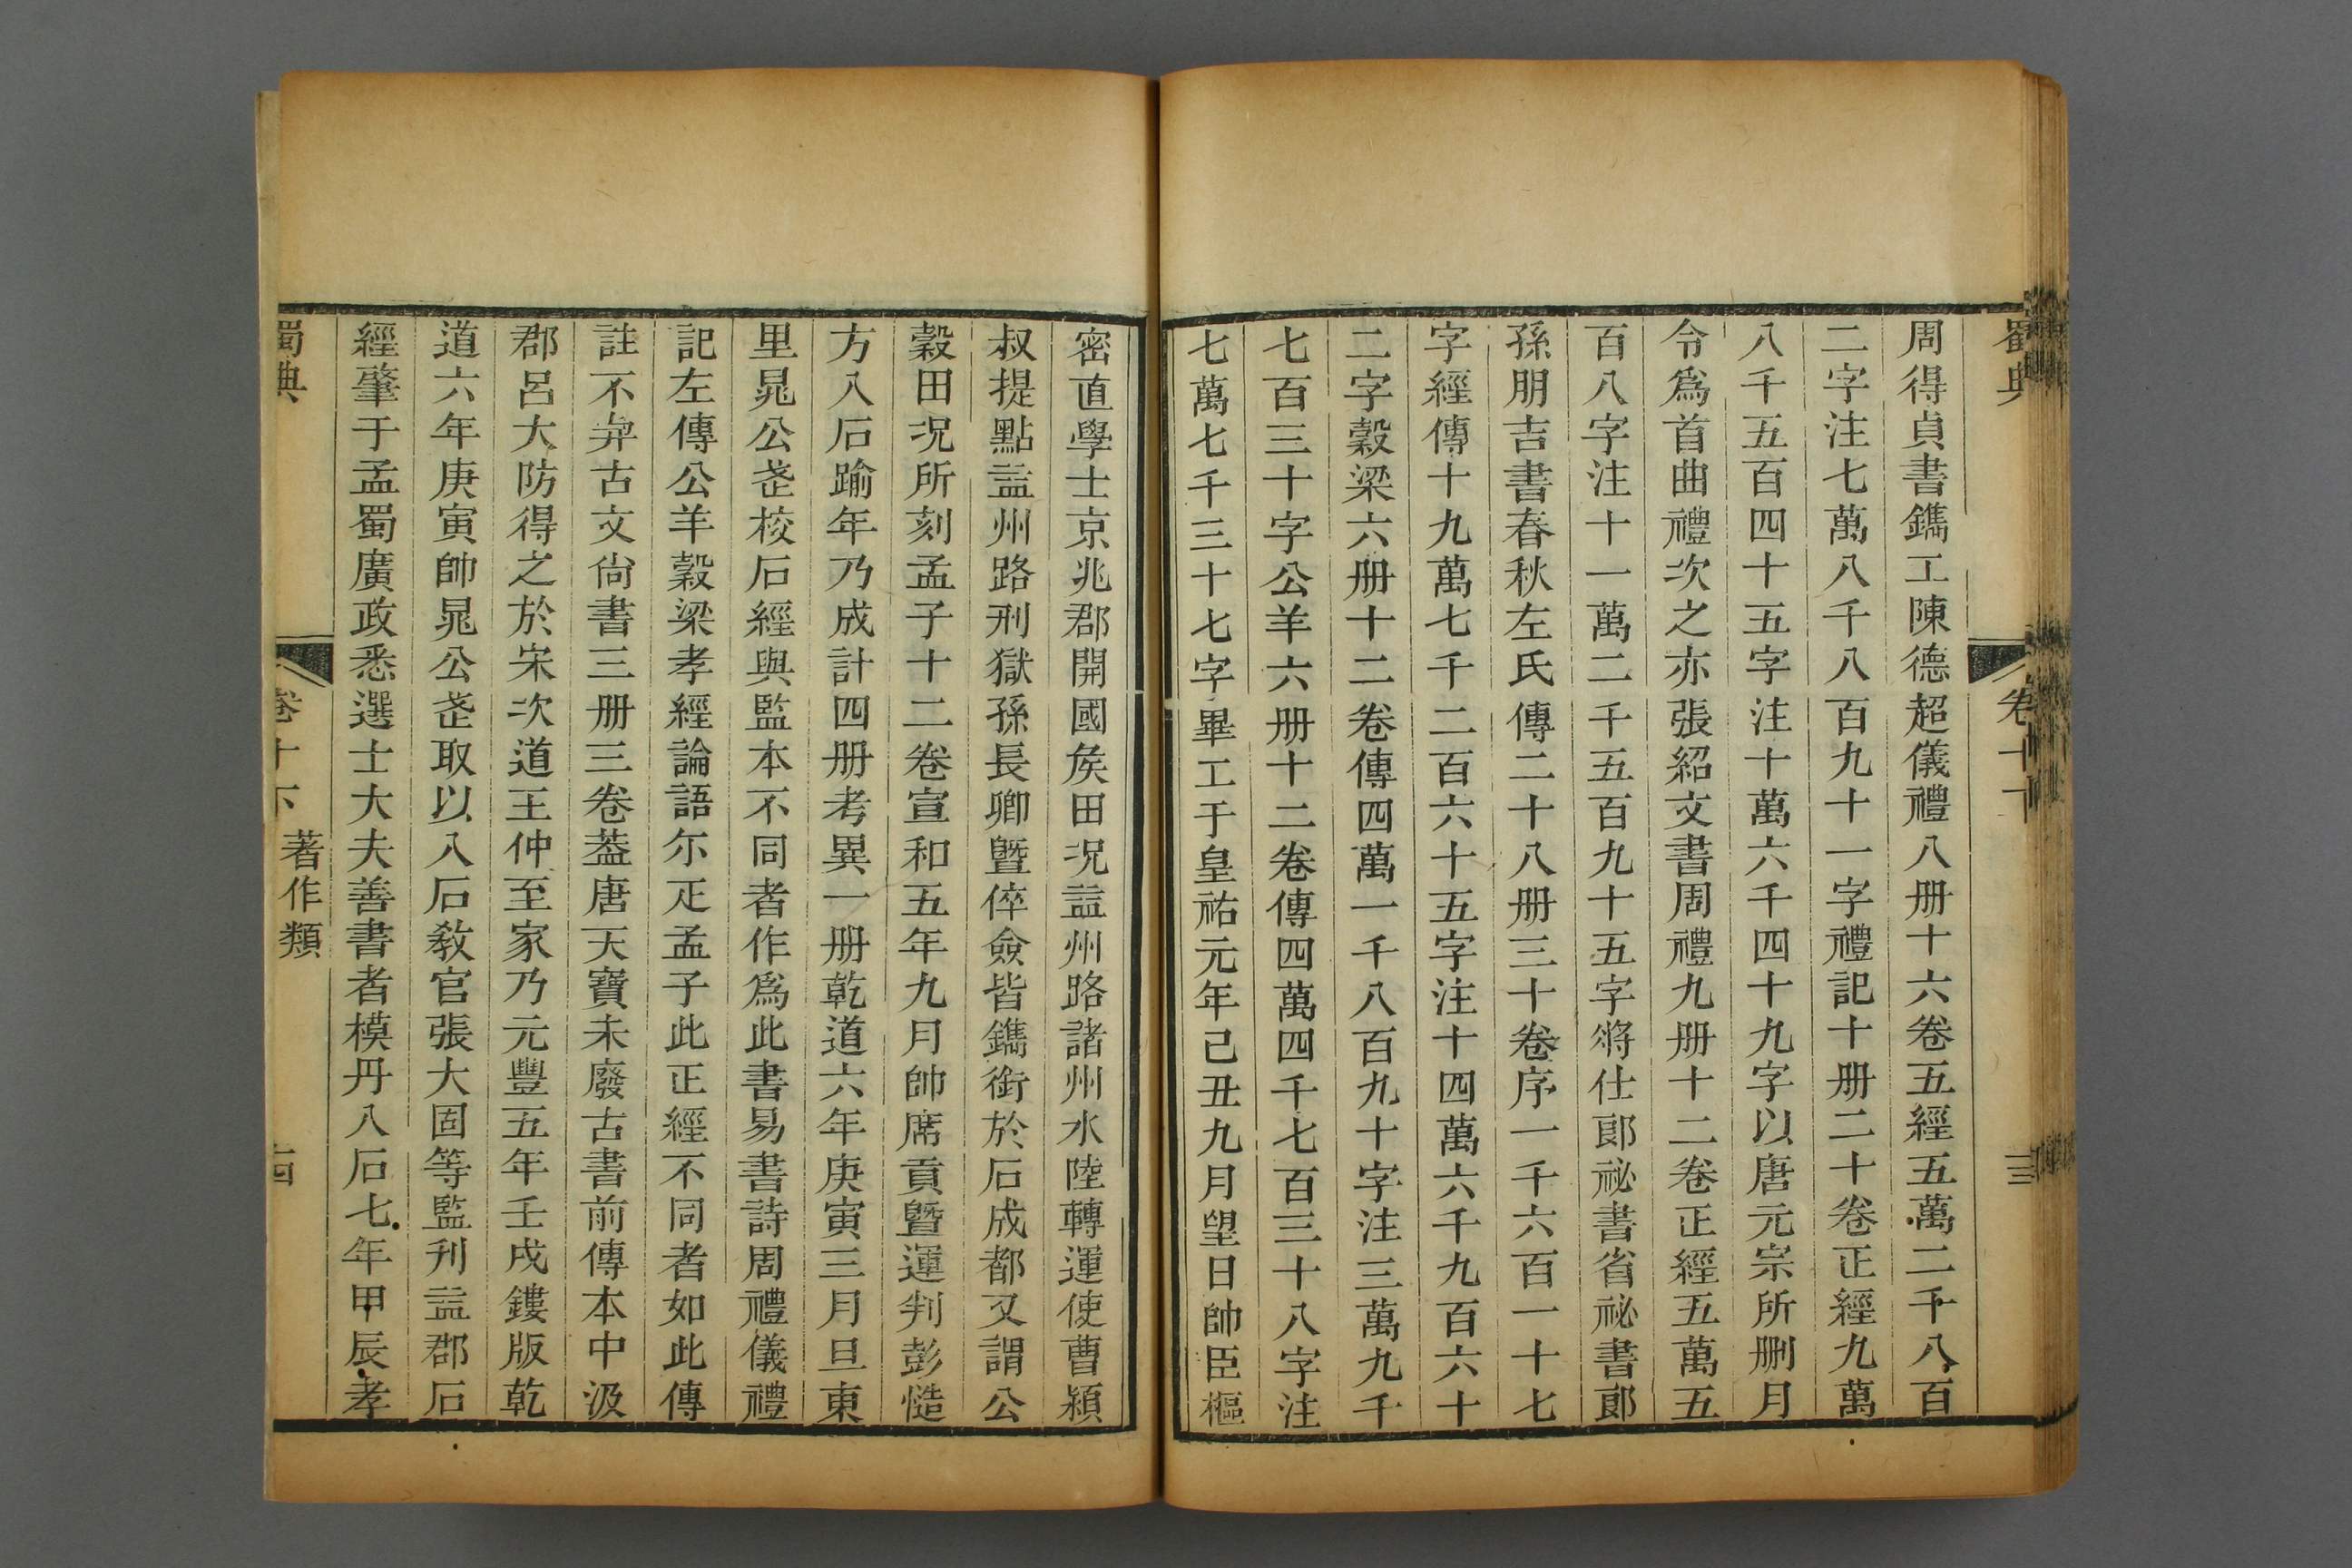 蜀典
卷十下
十三
周得貞書鐫工陳德超儀禮八册十六卷五經五萬二千八百
二字注七萬八千八百九十一字禮記十册二十卷正經九萬
八千五百四十五字注十萬六千四十九字以唐元宗所删月
令爲首曲禮次之亦張紹文書周禮九册十二卷正經五萬五
百八字注十一萬二千五百九十五字將仕郎祕書省祕書郎
孫朋吉書春秋左氏傳二十八册三十卷序一千六百一十七
字經傳十九萬七千二百六十五字注十四萬六千九百六十
二字穀梁六册十二卷傳四萬一千八百九十字注三萬九千
七百三十字公羊六册十二卷傳四萬四千七百三十八字注
七萬七千三十七字畢工于皇祐元年己丑九月望日帥臣樞
密直學士京兆郡開國矦田况益州路諸州水陸轉運使曹潁
叔提點益州路刑獄孫長卿曁倅僉皆鐫銜於石成都又謂公
穀田况所刻孟子十二卷宣和五年九月帥席貢曁運判彭慥
方入石踰年乃成計四册考異一册乾道六年庚寅三月旦東
里晁公武校石經與監本不同者作爲此書易書詩周禮儀禮
記左傳公羊穀梁孝經論語尒疋孟子此正經不同者如此傳
註不弁古文尙書三册三卷葢唐天寶未廢古書前傳本中汲
郡呂大防得之於宋次道王仲至家乃元豐五年壬戌鏤版乾
道六年庚寅帥晁公武取以入石敎官張大固等監刋益郡石
經肇于孟蜀廣政悉選士大夫善書者模丹八石七年甲辰孝
蜀典
卷十下
著作類
十四